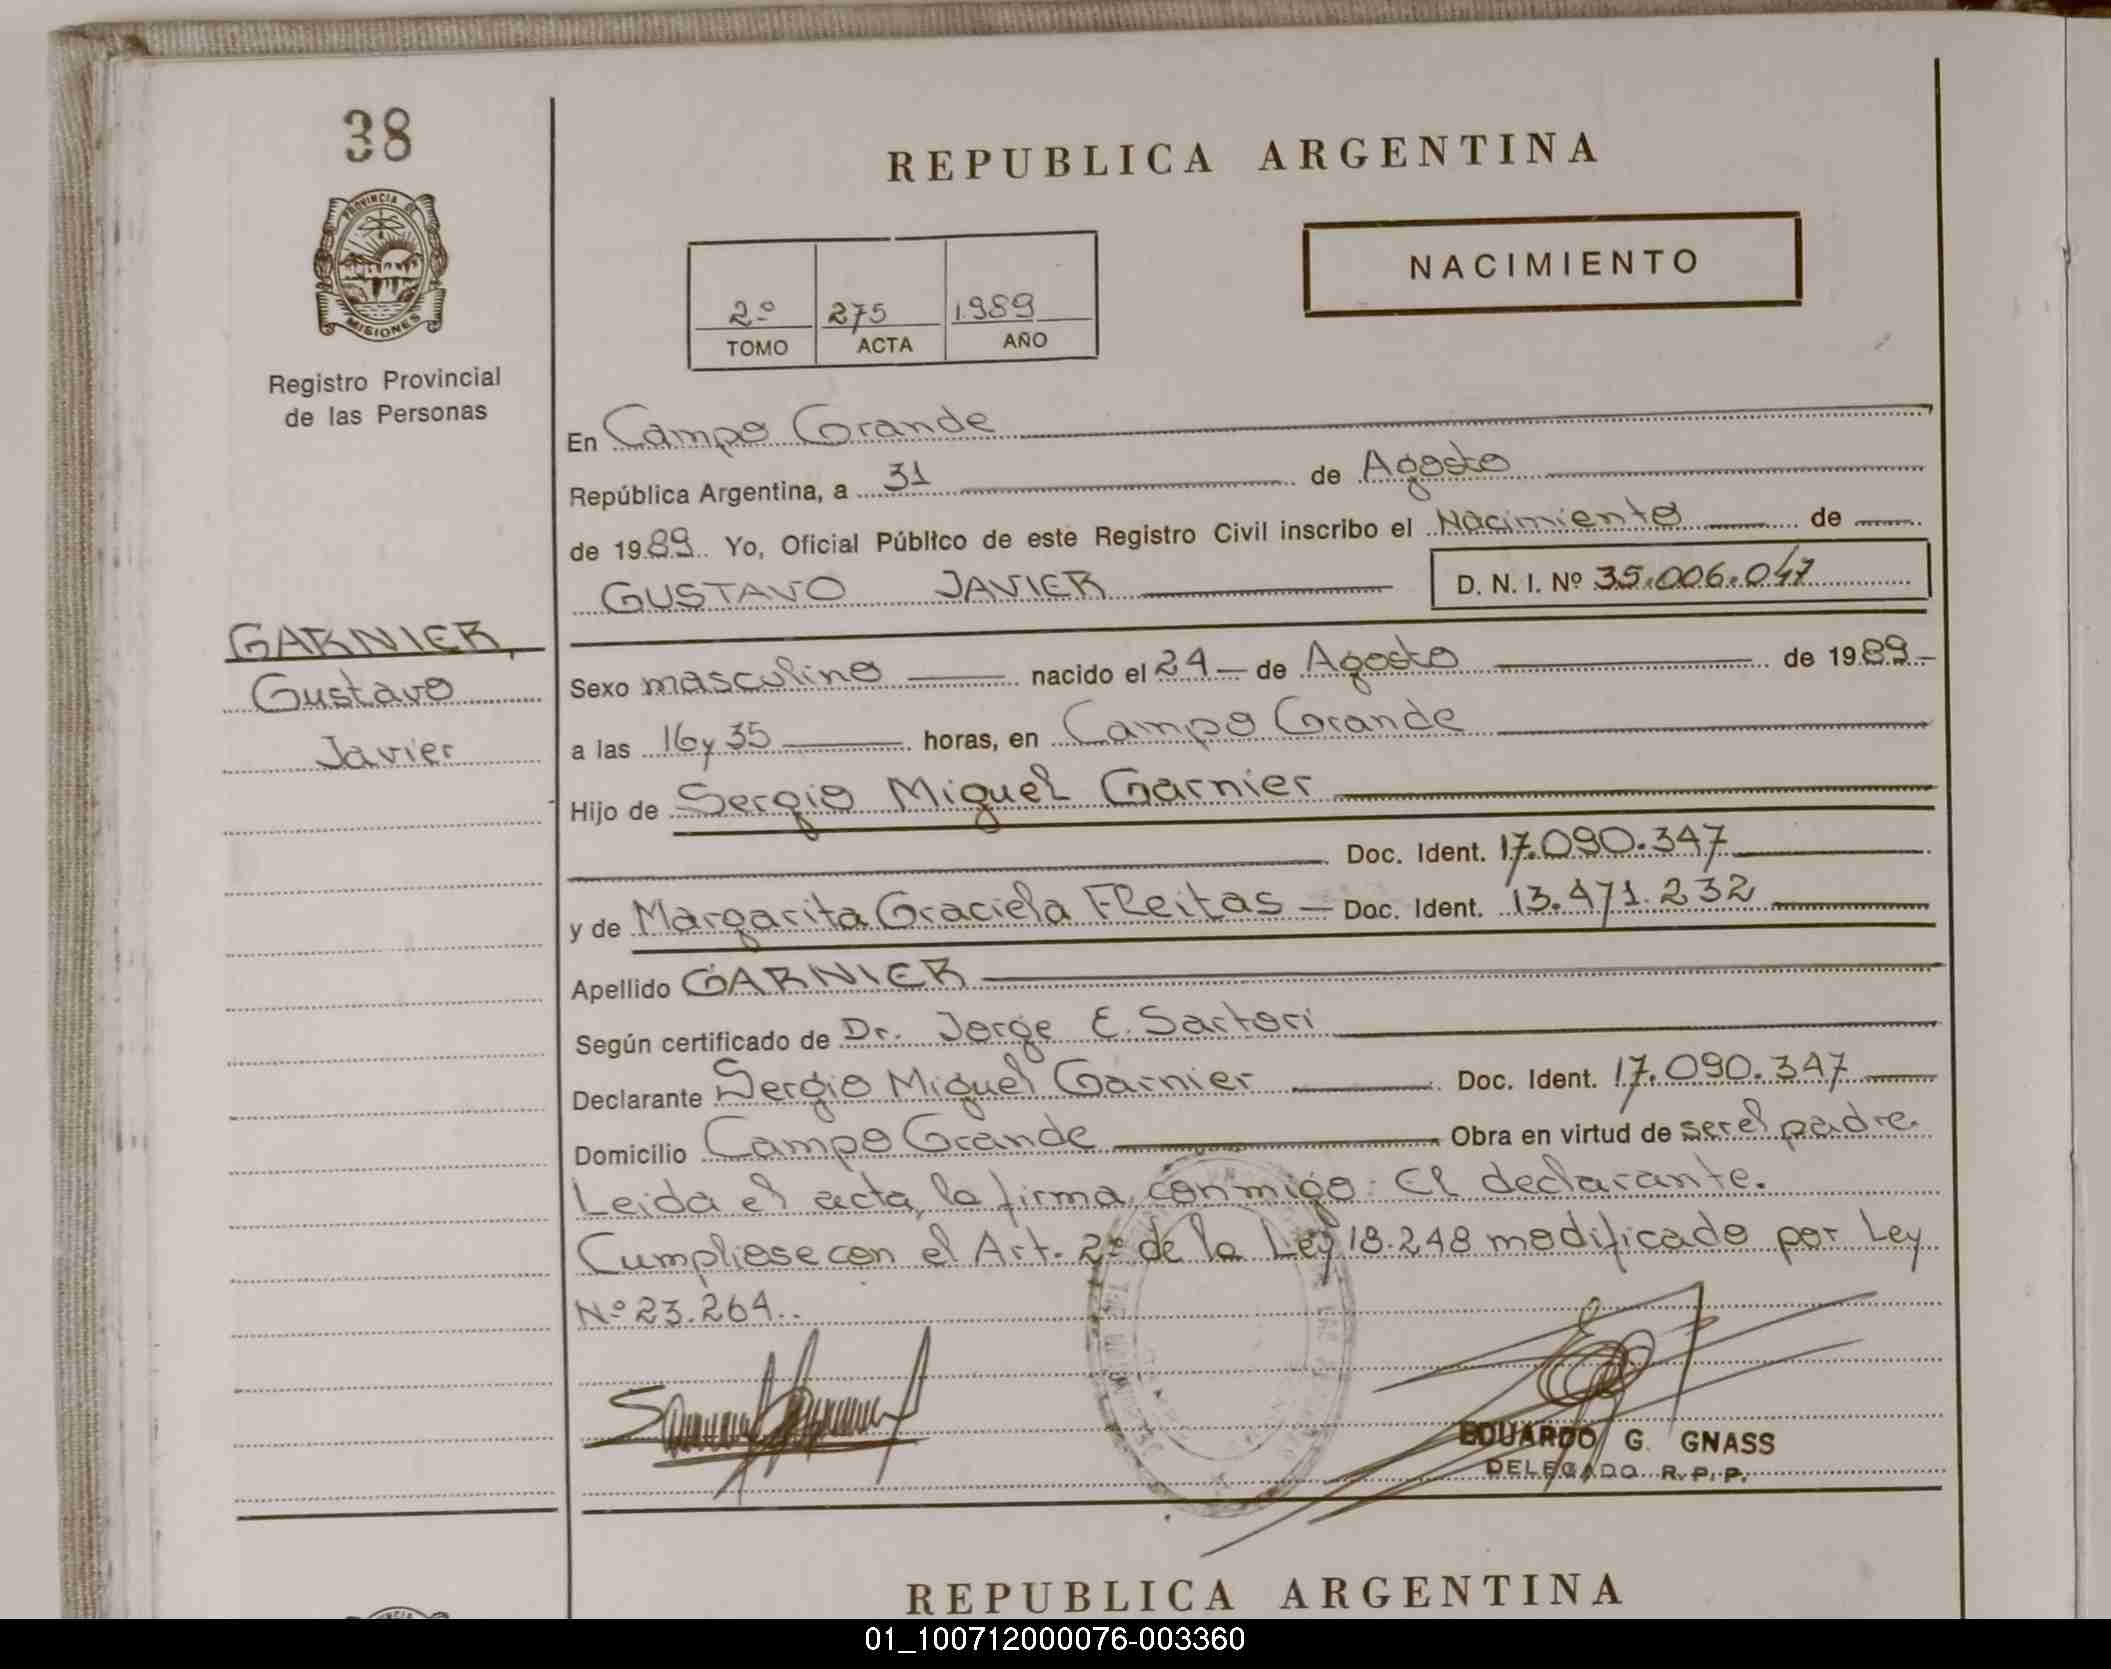 38
PROVINCIA DE
MISIONES
Registro Provincial
de las Personas
REPUBLICA ARGENTINA
NACIMIENTO
2º 275 1.989
TOMO ACTA AÑO
En Campo Grande
República Argentina, a 31 de Agosto
de 1989 Yo, Oficial Público de este Registro Civil inscribo el Nacimiento de
GUSTAVO JAVIER D. N. I. Nº 35.006.047
GARNIER,
Gustavo
Javier
Sexo masculino nacido el 24 de Agosto de 1989
a las 16 y 35 horas, en Campo Grande
Hijo de Sergio Miguel Garnier
Doc. Ident. 17.090.347
y de Margarita Graciela FReitas Doc. Ident. 13.471.232
Apellido GARNIER
Según certificado de Dr. Jorge E. Sartori
Declarante Sergio Miguel Garnier Doc. Ident. 17.090.347
Domicilio Campo Grande Obra en virtud de ser el padre.
Leida el acta, la firma conmigo: El declarante.
Cumpliose con el Art. 2º de la Ley 18.248 modificado por Ley
Nº 23.264..
EDUARDO G. GNASS
DELEGADO R.P.P.
REPUBLICA ARGENTINA
01_100712000076-003360